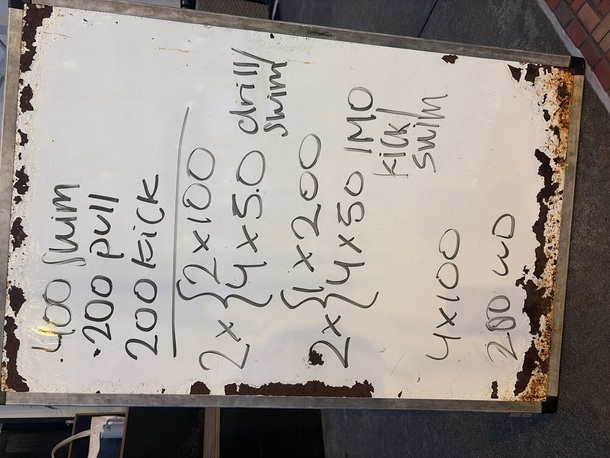 400 swim
200 pull
200 kick
2x{2x100
4x5.0 drill/
swim/
2x{1x200
4x50 IMO
kick/
swim
4x100
200 WD